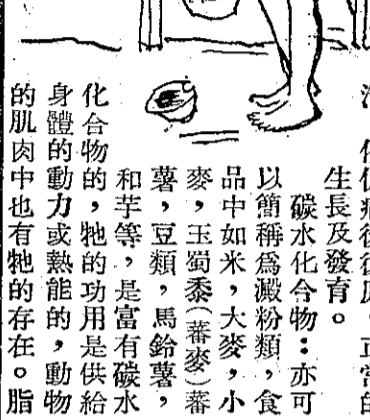 生長及發育。
碳水化合物：亦可
以簡稱爲澱粉類，食
品中如米，大麥，小
麥，玉蜀黍（蕃麥）蕃
薯，豆類，馬鈴薯，
和芋等，是富有碳水
化合物的，牠的功用是供給
身體的動力或熱能的，動物
的肌肉中也有牠的存在。脂